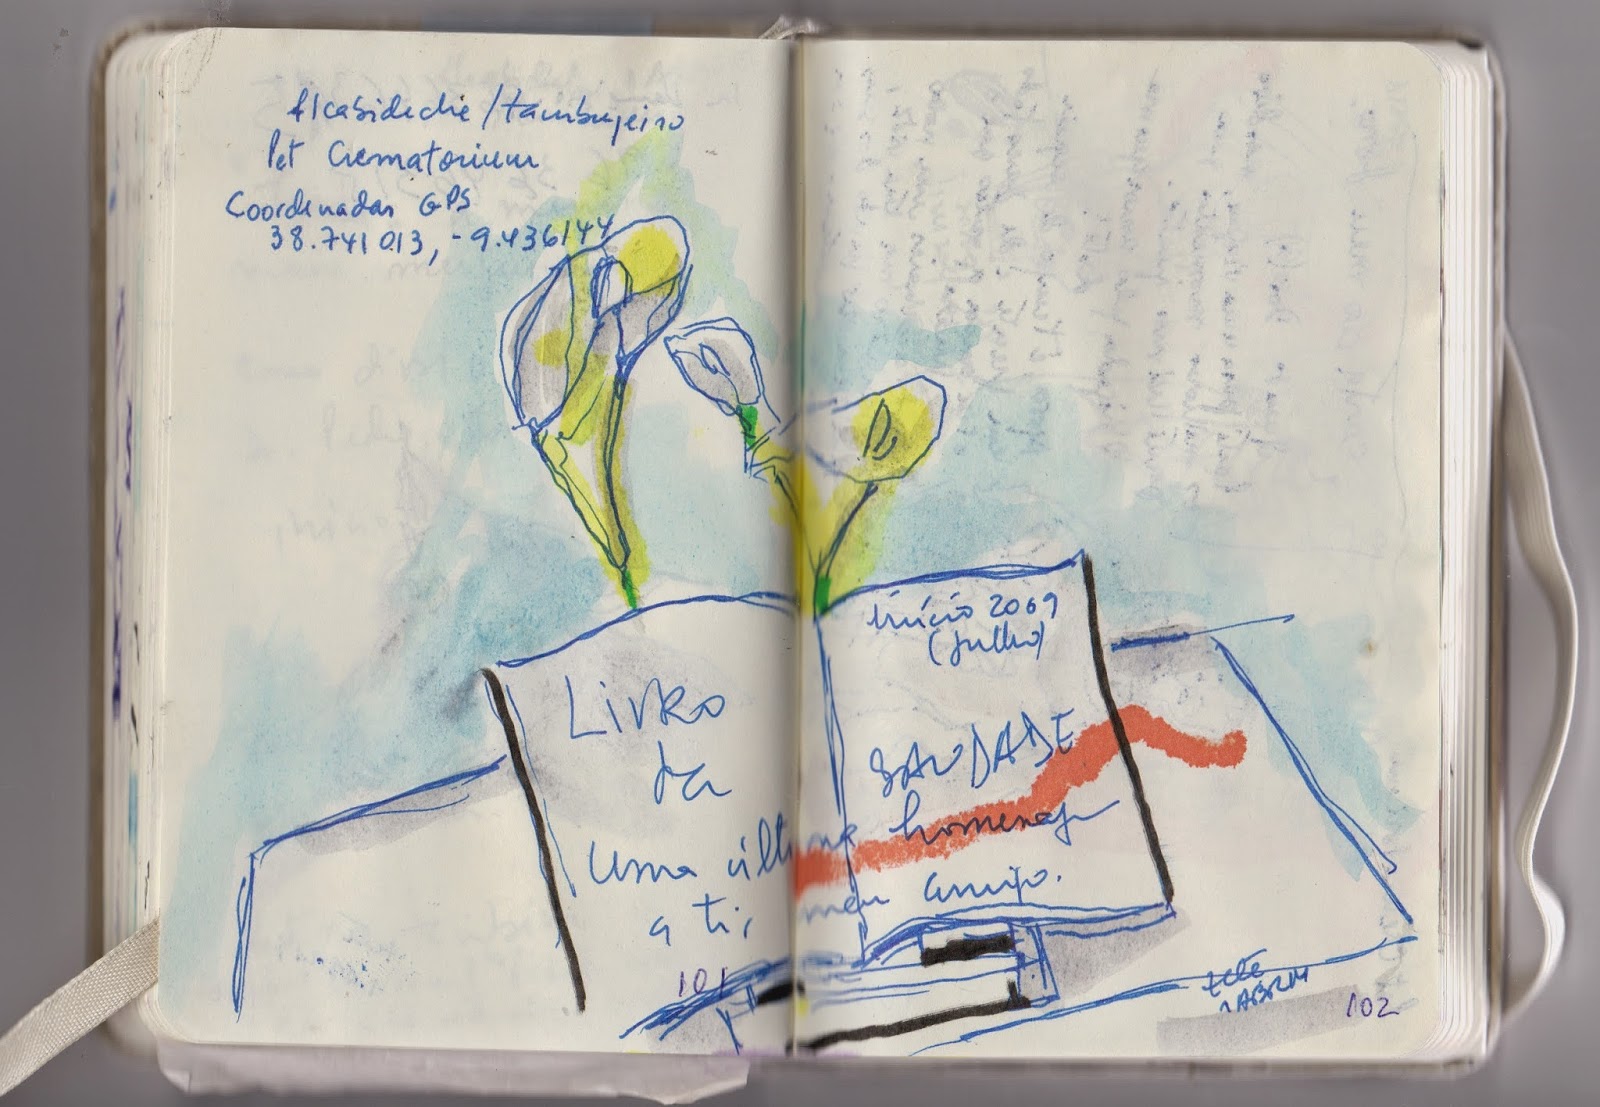 Alcabideche / tambujeiro
Pet Crematorium
Coordenadas GPS
38.741013, -9.436144
Início 2009
(Julho)
Livro
da SAUDADE
uma última homenagem
a ti, meu amigo.
101
102